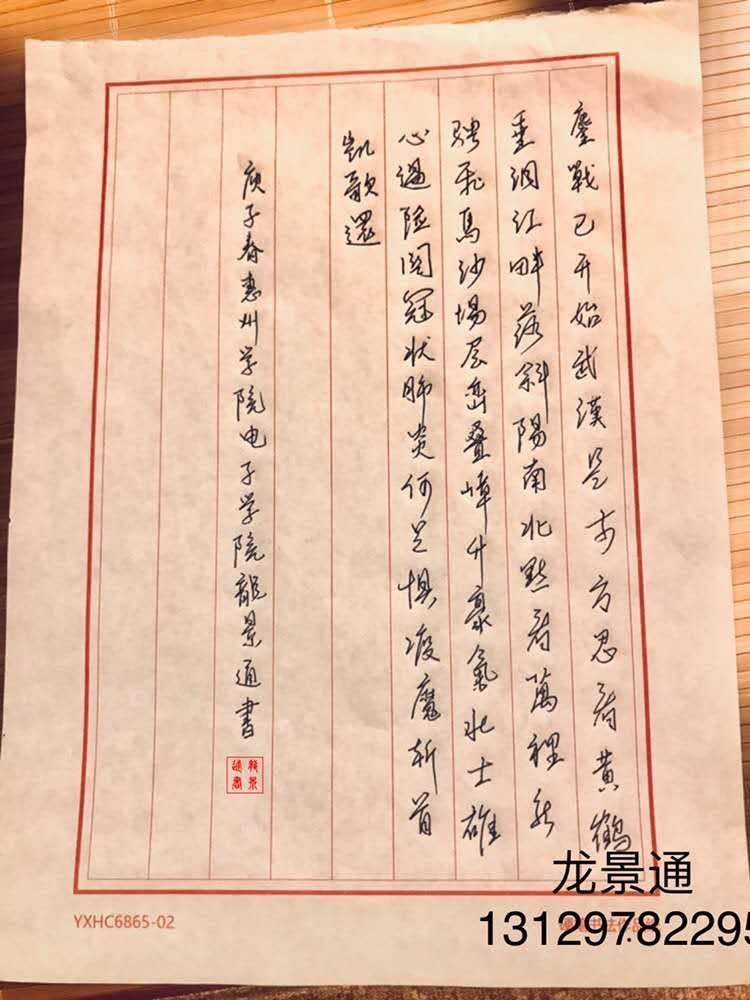 鏖戰已开始武漢是东方思君黄鶴
垂泪江畔落斜陽南北默君萬裡
騁飛馬沙場层峦叠嶂升豪氣壮士雄
心過险関冠状肺炎何足惧疫魔斩首
凱歌還
庚子春惠州学院电子学院龍景通書
龍景通書
YXHC6865-02
龙景通
13129782295